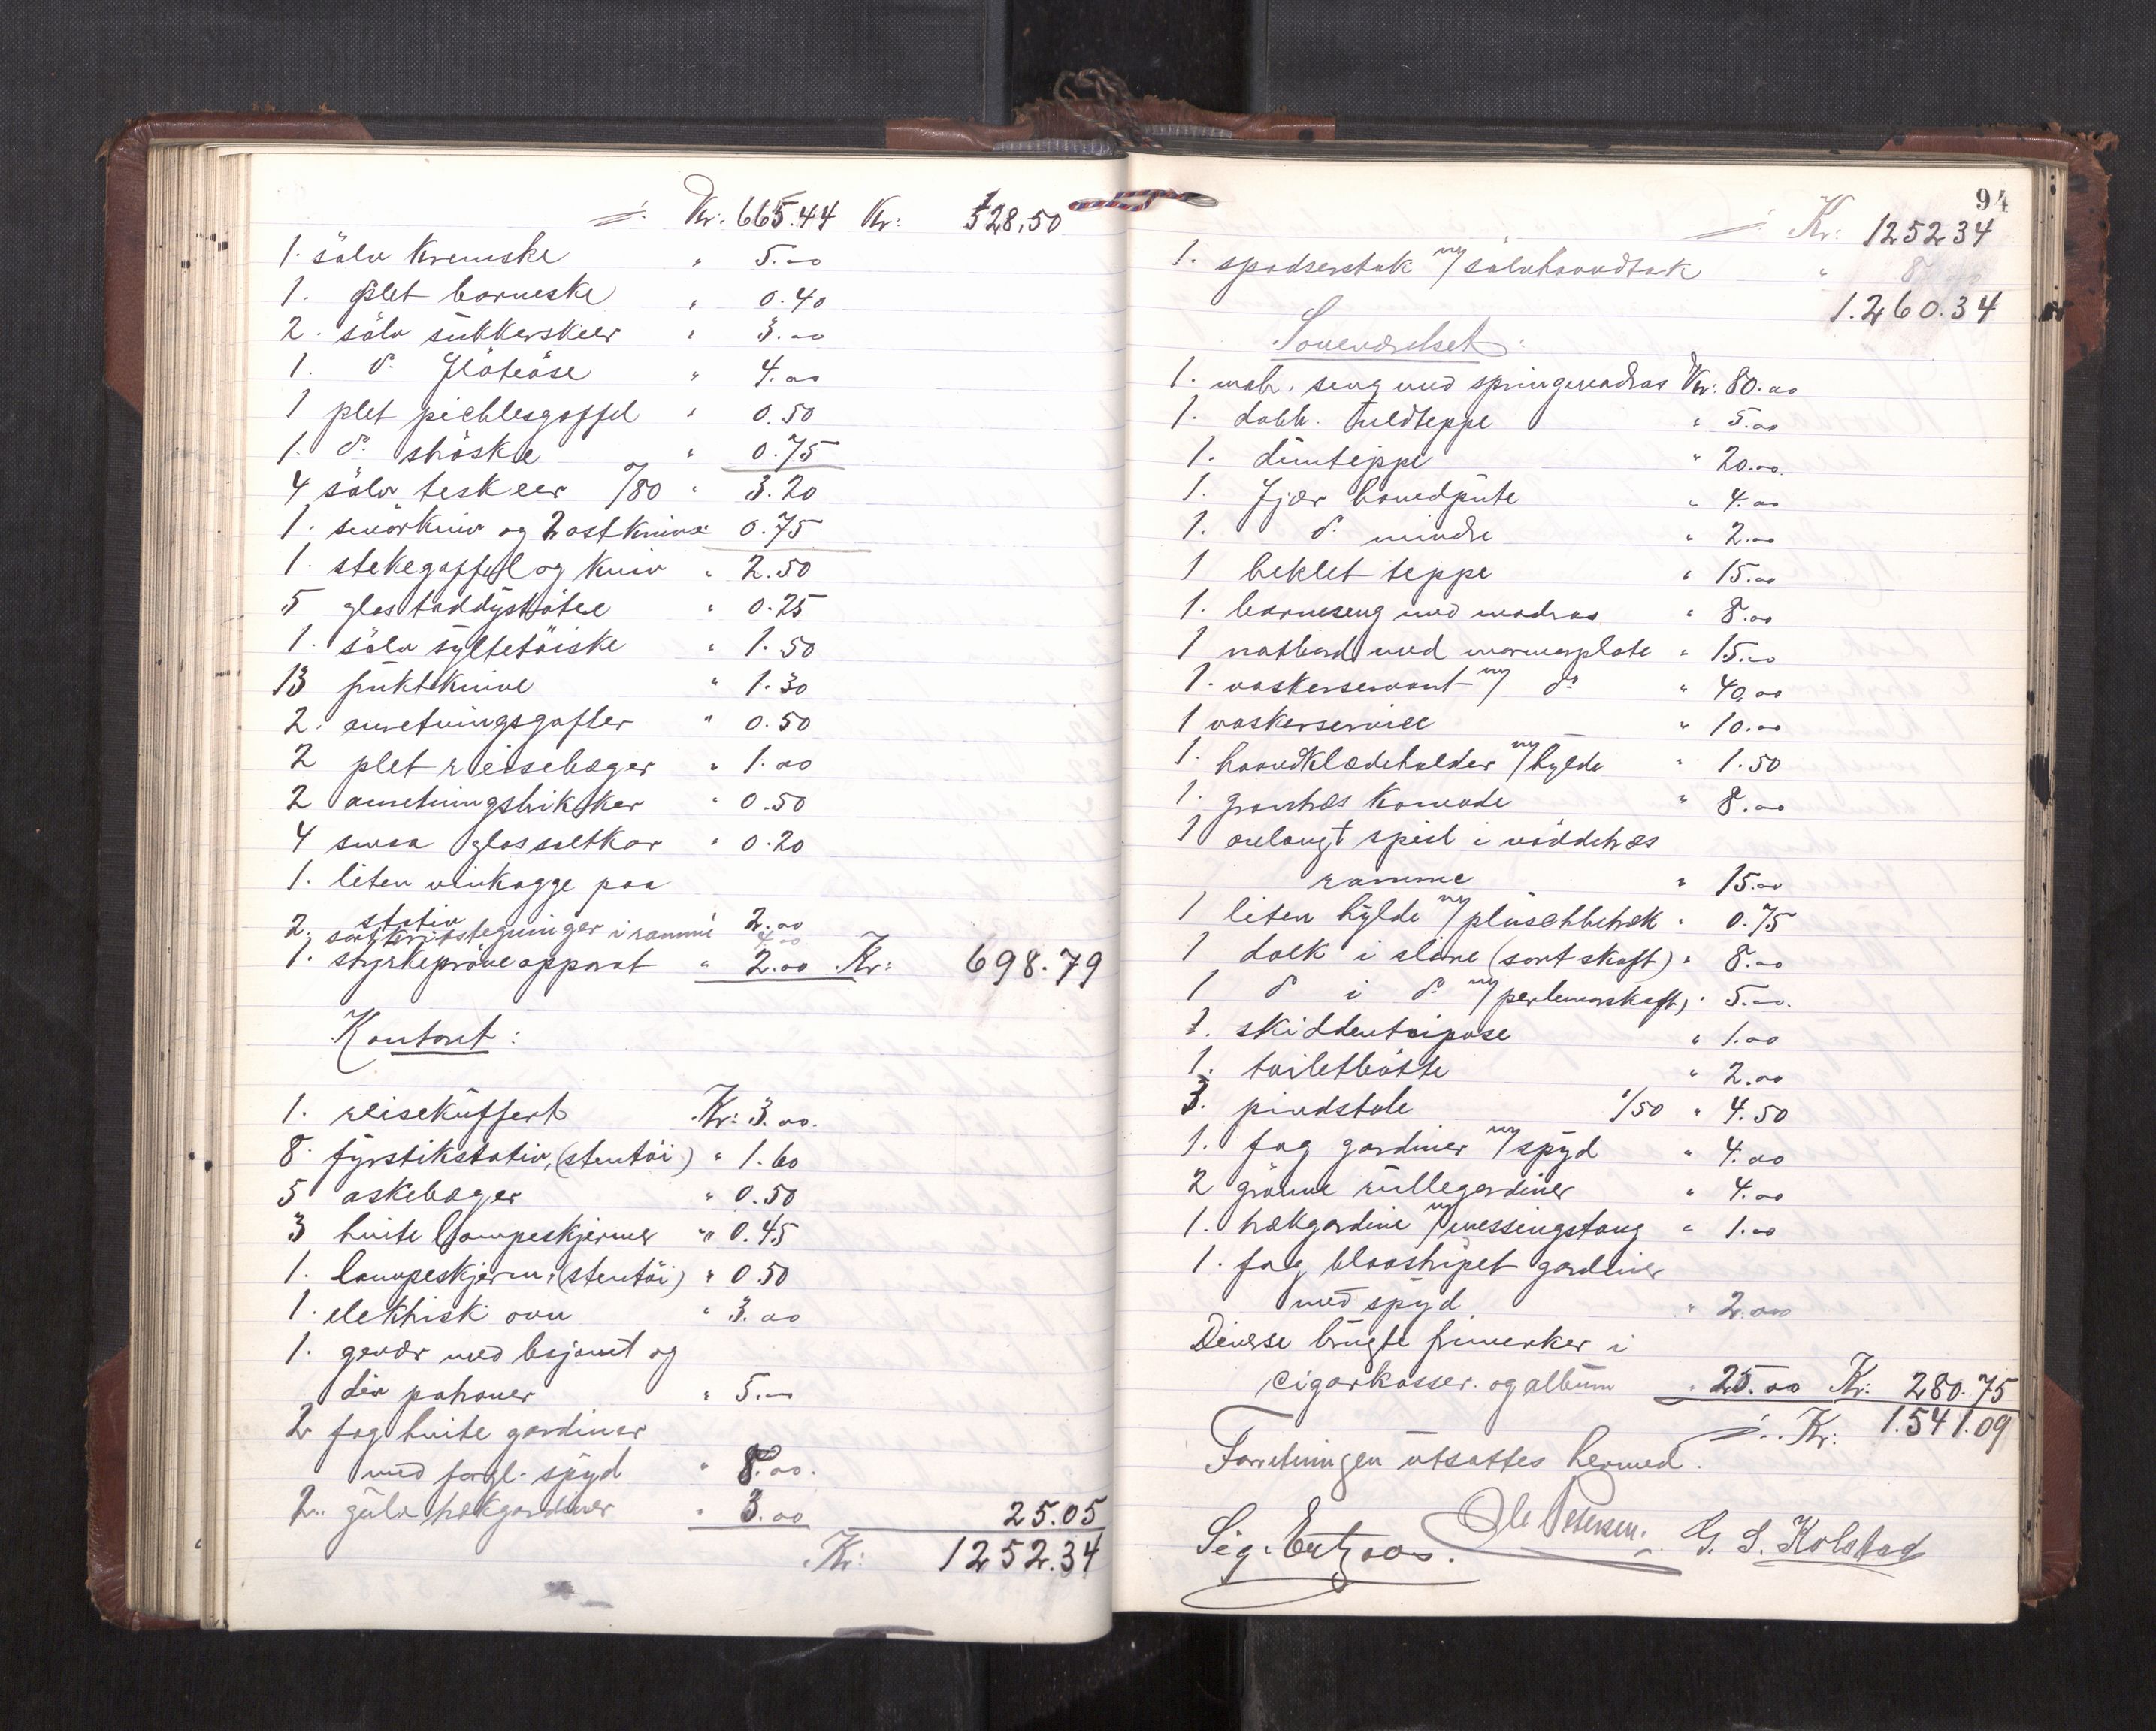 Kr. 665.44 Kr: 528.50
1. sölv kremske " 5.00
1. plet barneske " 0.40
2. sölv sukkerskeer " 3.00
1. do flöteöse " 4.00
1 plet picklesgaffel " 0.50
1. do ströske " 0.75
4 sölv teskeer /80 " 3.20
1. smörkniv og 2 ostknive 0.75
1. stekegaffel og kniv " 2.50
5 glas toddystötere " 0.25
1. sölv syltetöiske " 1.50
13 fruktknive " 1.30
2. anretningsgafler " 0.50
2 plet reisebæger " 1.00
2 anretningsbrikker " 0.50
4 smaa glassaltkar " 0.20
1. liten vinkagge paa
stativ 2.00
2. tegninger i ramme 4.00
1. styrkepröveapparat " 2.00 Kr: 698.79
Kontoret:
1. reisekuffert Kr: 3.00.
8 fyrstikstativ, (stentöi) " 1.60
5 askebæger " 0.50
3 hvite lampeskjermer " 0.45
1. lampeskjerm, (stentöi) " 0.50
1. elektrisk ovn " 3.00
1. gevær med bajonet og
div patroner " 5.00
2 fag hvite gardiner
med forgl. spyd " 8.00.
2. gule trækgardiner " 3.00 25.05
Kr: 1252.34
94
Kr: 125234
1. spadserstok m/ sölvhaandtak " 8.00
1.260.34
Soveværelset:
1. mah. seng med springmadras Kr: 80.00
1. dobb. uldteppe " 5.00
1. dunteppe " 20.00.
1. fjær hovedpute " 4.00
1. do mindre " 2.00
1 heklet teppe " 15.00
1. barneseng med madras " 8.00
1 natbord med marmorplate " 15.00
1. vaskerservant m/ do " 40.00
1 vaskerservice " 10.00
1. haandklædeholder m/ hylde " 1.50
1. grantræs komode " 8.00
1 avlangt speil i nöddetræs
ramme " 15.00
1 liten hylde m/ plüschbetræk " 0.75
1 dolk i slire (sort skaft) " 8.00
1 do i do m/ perlemorskaft, " 5.00.
1. skiddentöipose " 1.00
1. toiletbötte " 2.00
3. pindstole 1/50 " 4.50
1. fag gardiner m/ spyd " 4.00
2 grönne rullegardiner " 4.00
1. trækgardine m/ messingstang " 1.00
1. fag blaastripet gardiner
med spyd " 2.00
Diverse brugte frimerker i
cigarkasser og album " 25.00 Kr: 280.75
Kr: 1.541.09
Forretningen utsattes hermed.
Ole Petersen. G. S. Kolstad
Sig.